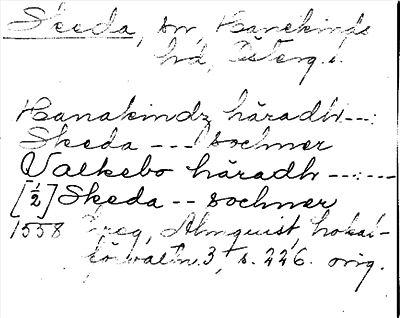 Skeda, sn, Hanekinds
hd, Österg.l.
Hanakindz häradh---:
Skeda --- sochner
Valkebo häradh ---:---
[½] Skeda -- sochner
1558 Greg, Almquist, Lokal-
förvaltn. 3, s. 226. orig.